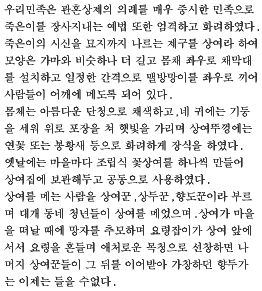 우리민족은 관혼상제의 의례를 매우 중시한 민족으로
죽은이를 장사지내는 예법 또한 엄격하고 화려하였다.
죽은이의 시신을 묘지까지 나르는 제구를 상여라 하여
모양은 가마와 비슷하나 더 길고 몸채 좌우로 채막대
를 설치하고 일정한 간격으로 멜방망이를 좌우로 끼어
사람들이 어깨에 메도록 되어 있다.
몸체는 아름다운 단청으로 채색하고,네 귀에는 기둥
을 세워 위로 포장을 쳐 햇빛을 가리며 상여뚜껑에는
연꽃 또는 봉황새 등으로 화려하게 장식을 하였다.
옛날에는 마을마다 조립식 꽃상여를 하나씩 만들어
상여집에 보관해두고 공동으로 사용하였다.
상여를 메는 사람을 상여꾼,상두꾼,향도꾼이라 부르
며 대개 동네 청년들이 상여를 메었으며,상여가 마을
을 떠날 때에 망자를 추모하며 요령잡이가 상여 앞에
서서 요령을 흔들며 애처로운 목청으로 선창하면 나
머지 상여꾼들이 그 뒤를 이어받아 가창하던 향두가
는 이제는 들을 수없다.